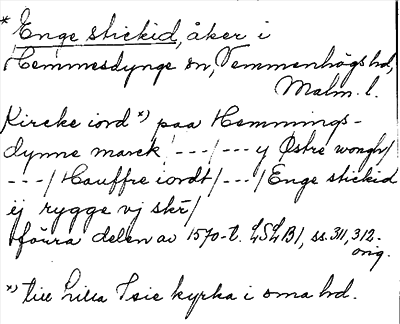 * Enge stickid, åker i
Hemmesdynge sn, Vemmenhögs hd,
Malm. l.
Kircke iord *) paa Hemmings-
dynne marck /---/---y Østre wongh/
---/ Hauffre iordt/---/Enge stickid
ij rygge vj skr/
förra delen av 1570-t. LSLB1, ss. 311, 312.
orig.
*) till Lilla Isie kyrka i sma hd.